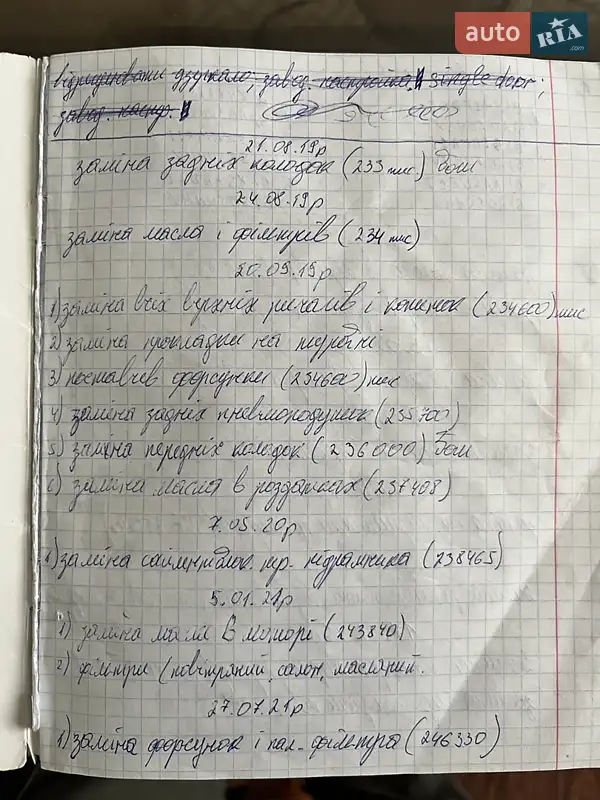 auto RIA .com
відрегулювати дзеркало, завод. настройка, single door;
завод. настр.
21.08.19р
заміна задніх колодок (233 тис.) Бош
24.08.19р
заміна масла і фільтрів (234 тис)
20.09.19р
1) заміна всіх верхніх ричагів і копиток (234600) тис
2) заміна прокладки на турбіні
3) поставив форсунки (234600) тис
4) заміна задніх пневмоподушок (235700)
5) заміна передніх колодок (236000) Бош
6) заміна масла в роздатках (237408)
7.05.20р
1) заміна сайлентблок пр. підрамника (238465)
5.01.21р
1) заміна масла в моторі (243840)
2) фільтри (повітряний, салон, масляний.
27.07.21р
1) заміна форсунок і пал. фільтра (246330)